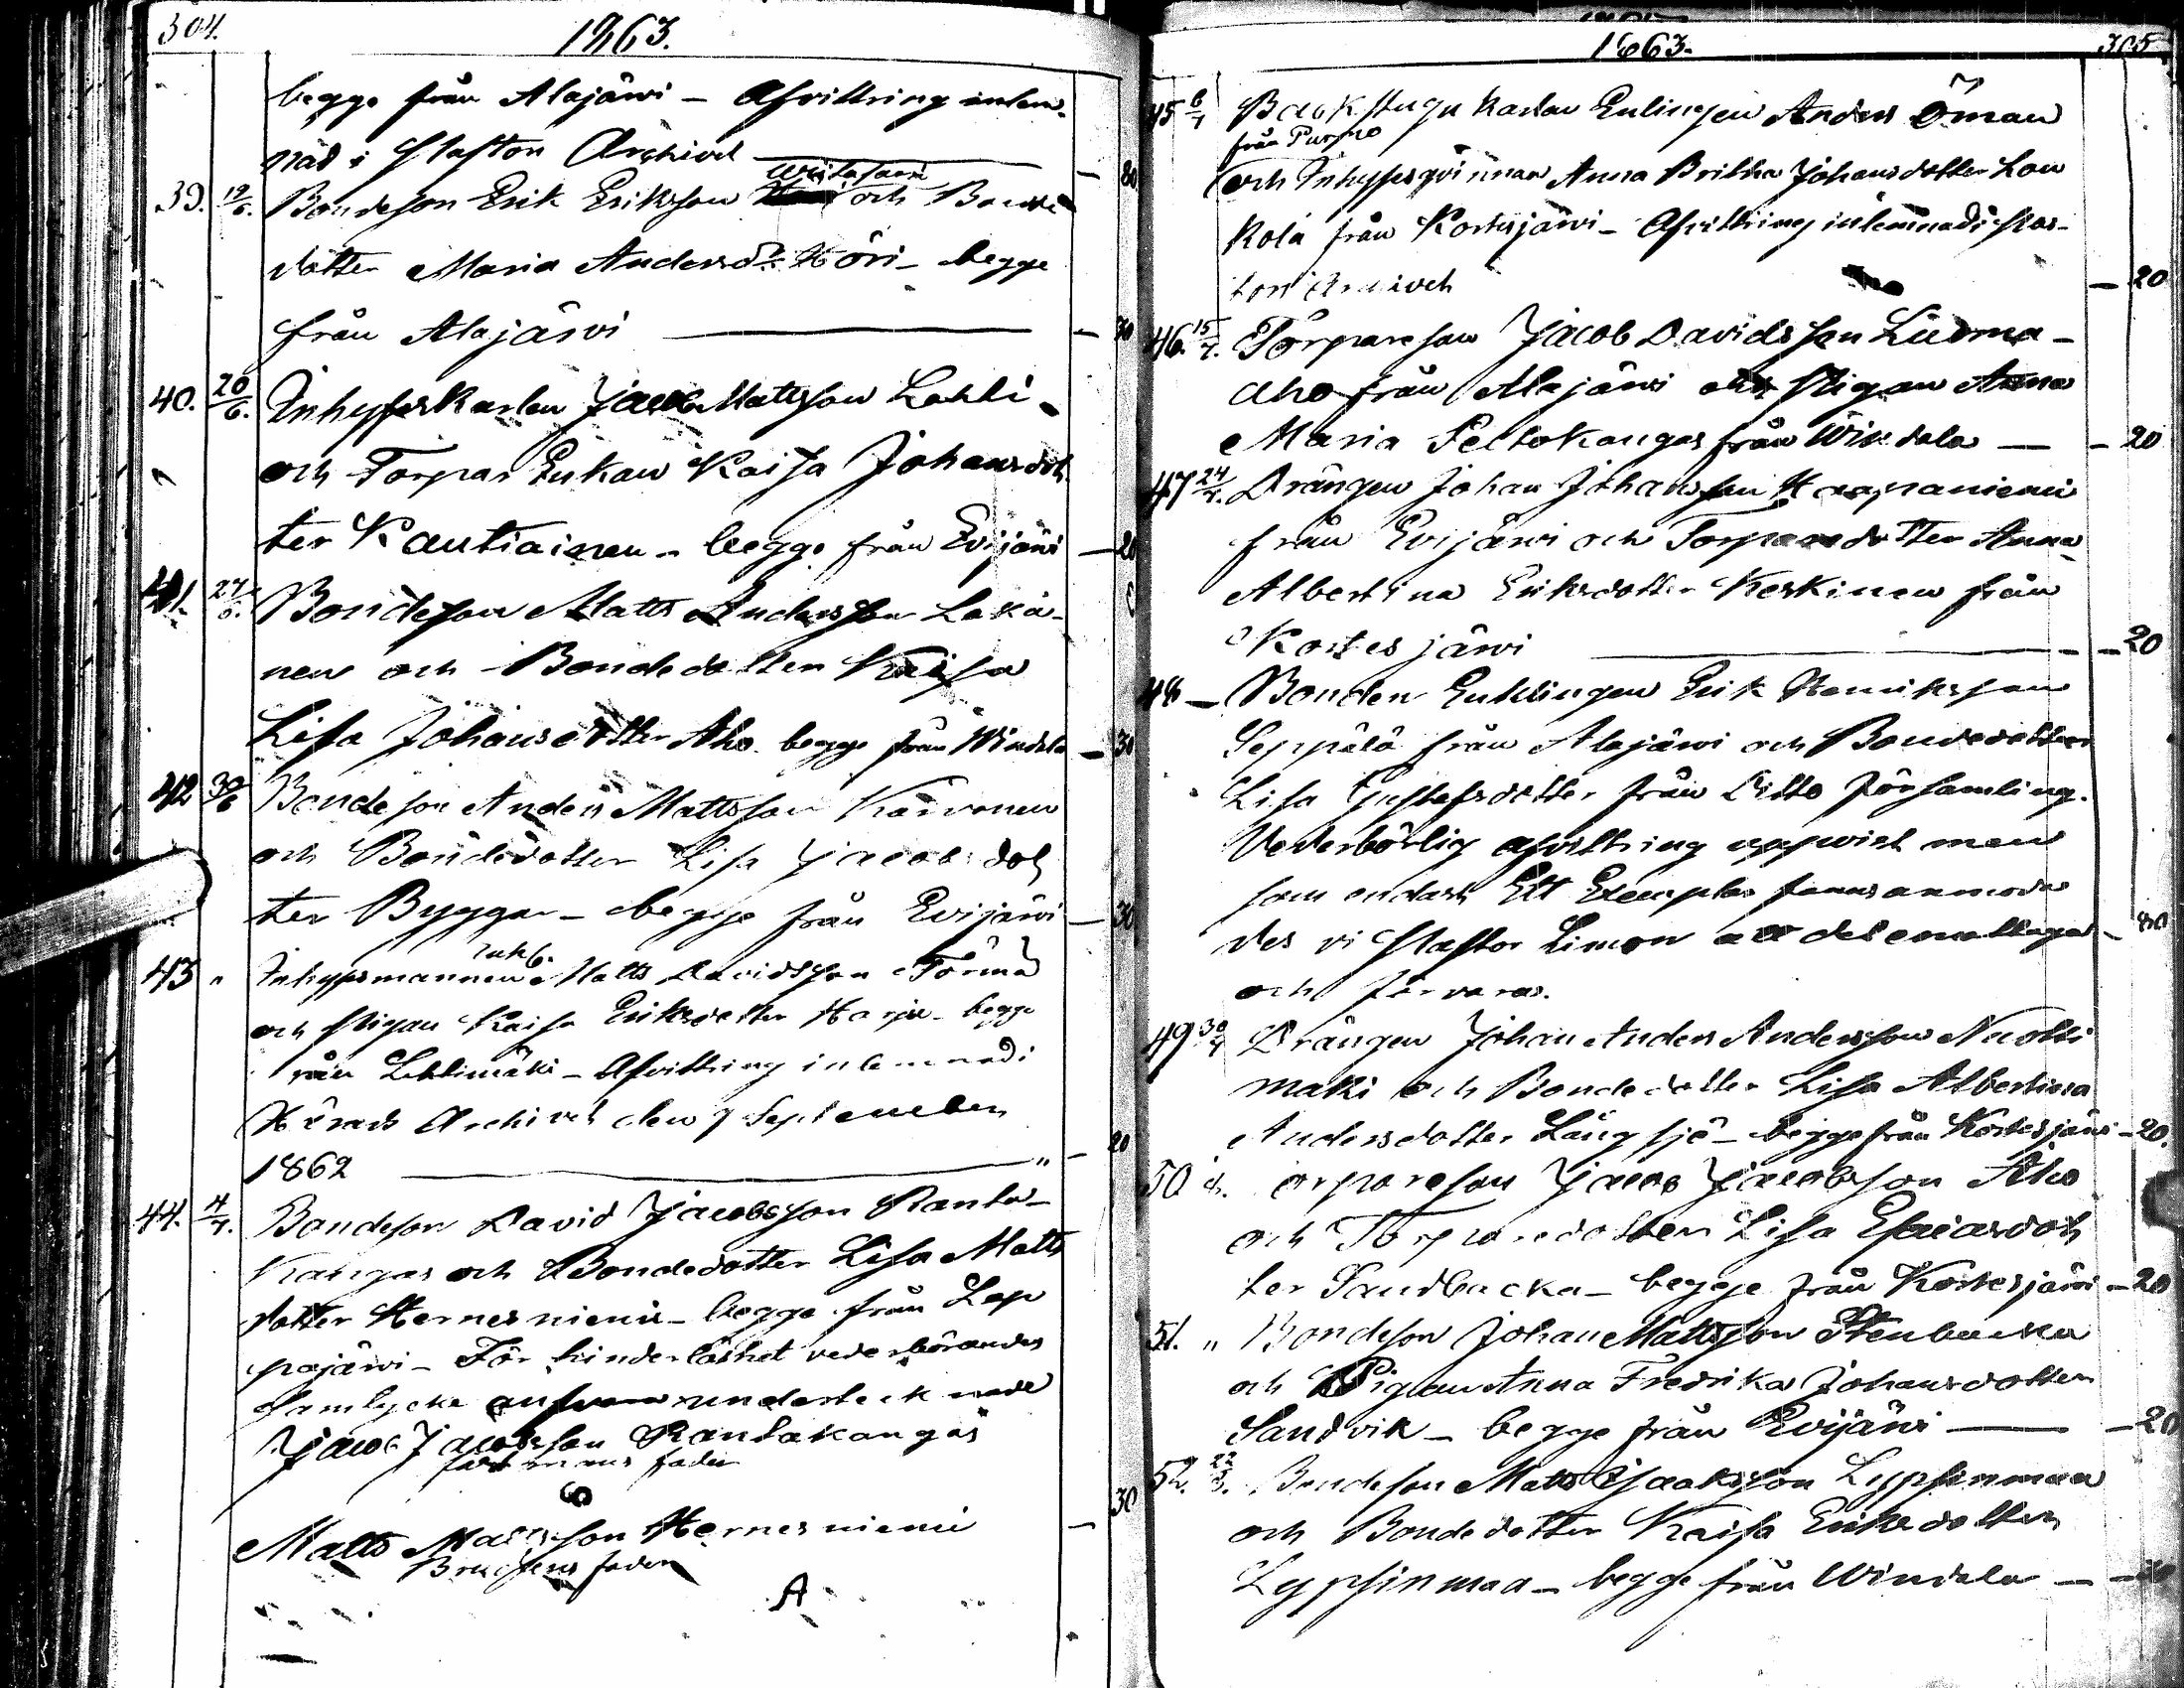 304.
1863.
begge från Alajärwi – Afvittring inlem-
nad i Pastors Archivet — 80
39. 19/6. Bondeson Erik Eriksson Wiitasaari och Bonde
dotter Maria Andersdr Köri – begge
från Alajärwi — 30
40. 20/6. Inhyseskarlen Jacob Mattsson Lahti –
och Torpar Enkan Kaisa Johansdot
ter Kautiainen – begge från Evijärwi — 20
41. 27/6. Bondeson Matts Andersson Lakä-
nen och Bondedotter Kaisa
Lisa Johansdotter Aho. begge från Windala — 30
42 30/6 Bondeson Anders Mattsson Karvonen
och Bondedotter Lisa Jacobsdot
ter Byggar – begge från Evijärwi — 30
43 " Inhysesmannen Enkl. Matts Davidsson Törmä
och Pigan Kaisa Eriksdotter Harju – begge
från Lehtimäki – Afvittring inlemnad i
Härads Archivet den 7 September
1862 — " — 20
44. 4/7. Bondeson David Jacobsson Ranta-
kangas och Bondedotter Lisa Matts
dotter Hernesniemi – begge från Lap
pajärwi – För hinderlöshet vederbörandes
samtycke undertecknade
Jacob Jacobsson Rantakangas
fästmans fader
Matts Mattsson Hernesniemi — 30
Brudens fader
A
1863.
305
45 6/7 Backstugu karlen Enklingen Anders Öman
från Purmo
och Inhysesqvinnan Anna Britha Johansdotter Lou
kola från Kortesjärwi – Afvittring inlemnad i Pas-
tors Archivet — 20
46. 15/7. Torpareson Jacob Davidsson Liuoma-
aho från Alajärwi och Pigan Anna
Maria Peltokangas från Windala — – 20
47 24/7. Drängen Johan Johansson Haapaniemi
från Evijärwi och Torparedotter Anna
Albertina Eriksdotter Keskinen från
Kortesjärwi — 20
48 – Bonden Enklingen Erik Henriksson
Seppälä från Alajärwi och Bondedotter
Lisa Gustafsdotter från Ditto församling.
Vederbörlig afvittring uppvist men
som endast Ett Exemplar fanns anmoda
des vi Pastor Limon att det emottaga – 80
och förvaras.
49. 30/7 Drängen Johan Anders Andersson Nuotti
mäki och Bondedotter Lisa Albertina
Andersdotter Långsjö – begge från Kortesjärwi – 20.
50 Torpareson Jacob Jacobsson Aho
och Torparedotter Lisa Esaiasdot
ter Sandbacka – begge från Kortesjärwi – 20
51. " Bondeson Johan Mattsson Stenbacka
och Pigan Anna Fredrika Johansdotter
Sandvik – begge från Evijärwi — – 20
52. 22/8. Bondeson Matts Isaaksson Lypsinmaa
och Bondedotter Kaisa Eriksdotter
Lypsinmaa – begge från Windala —